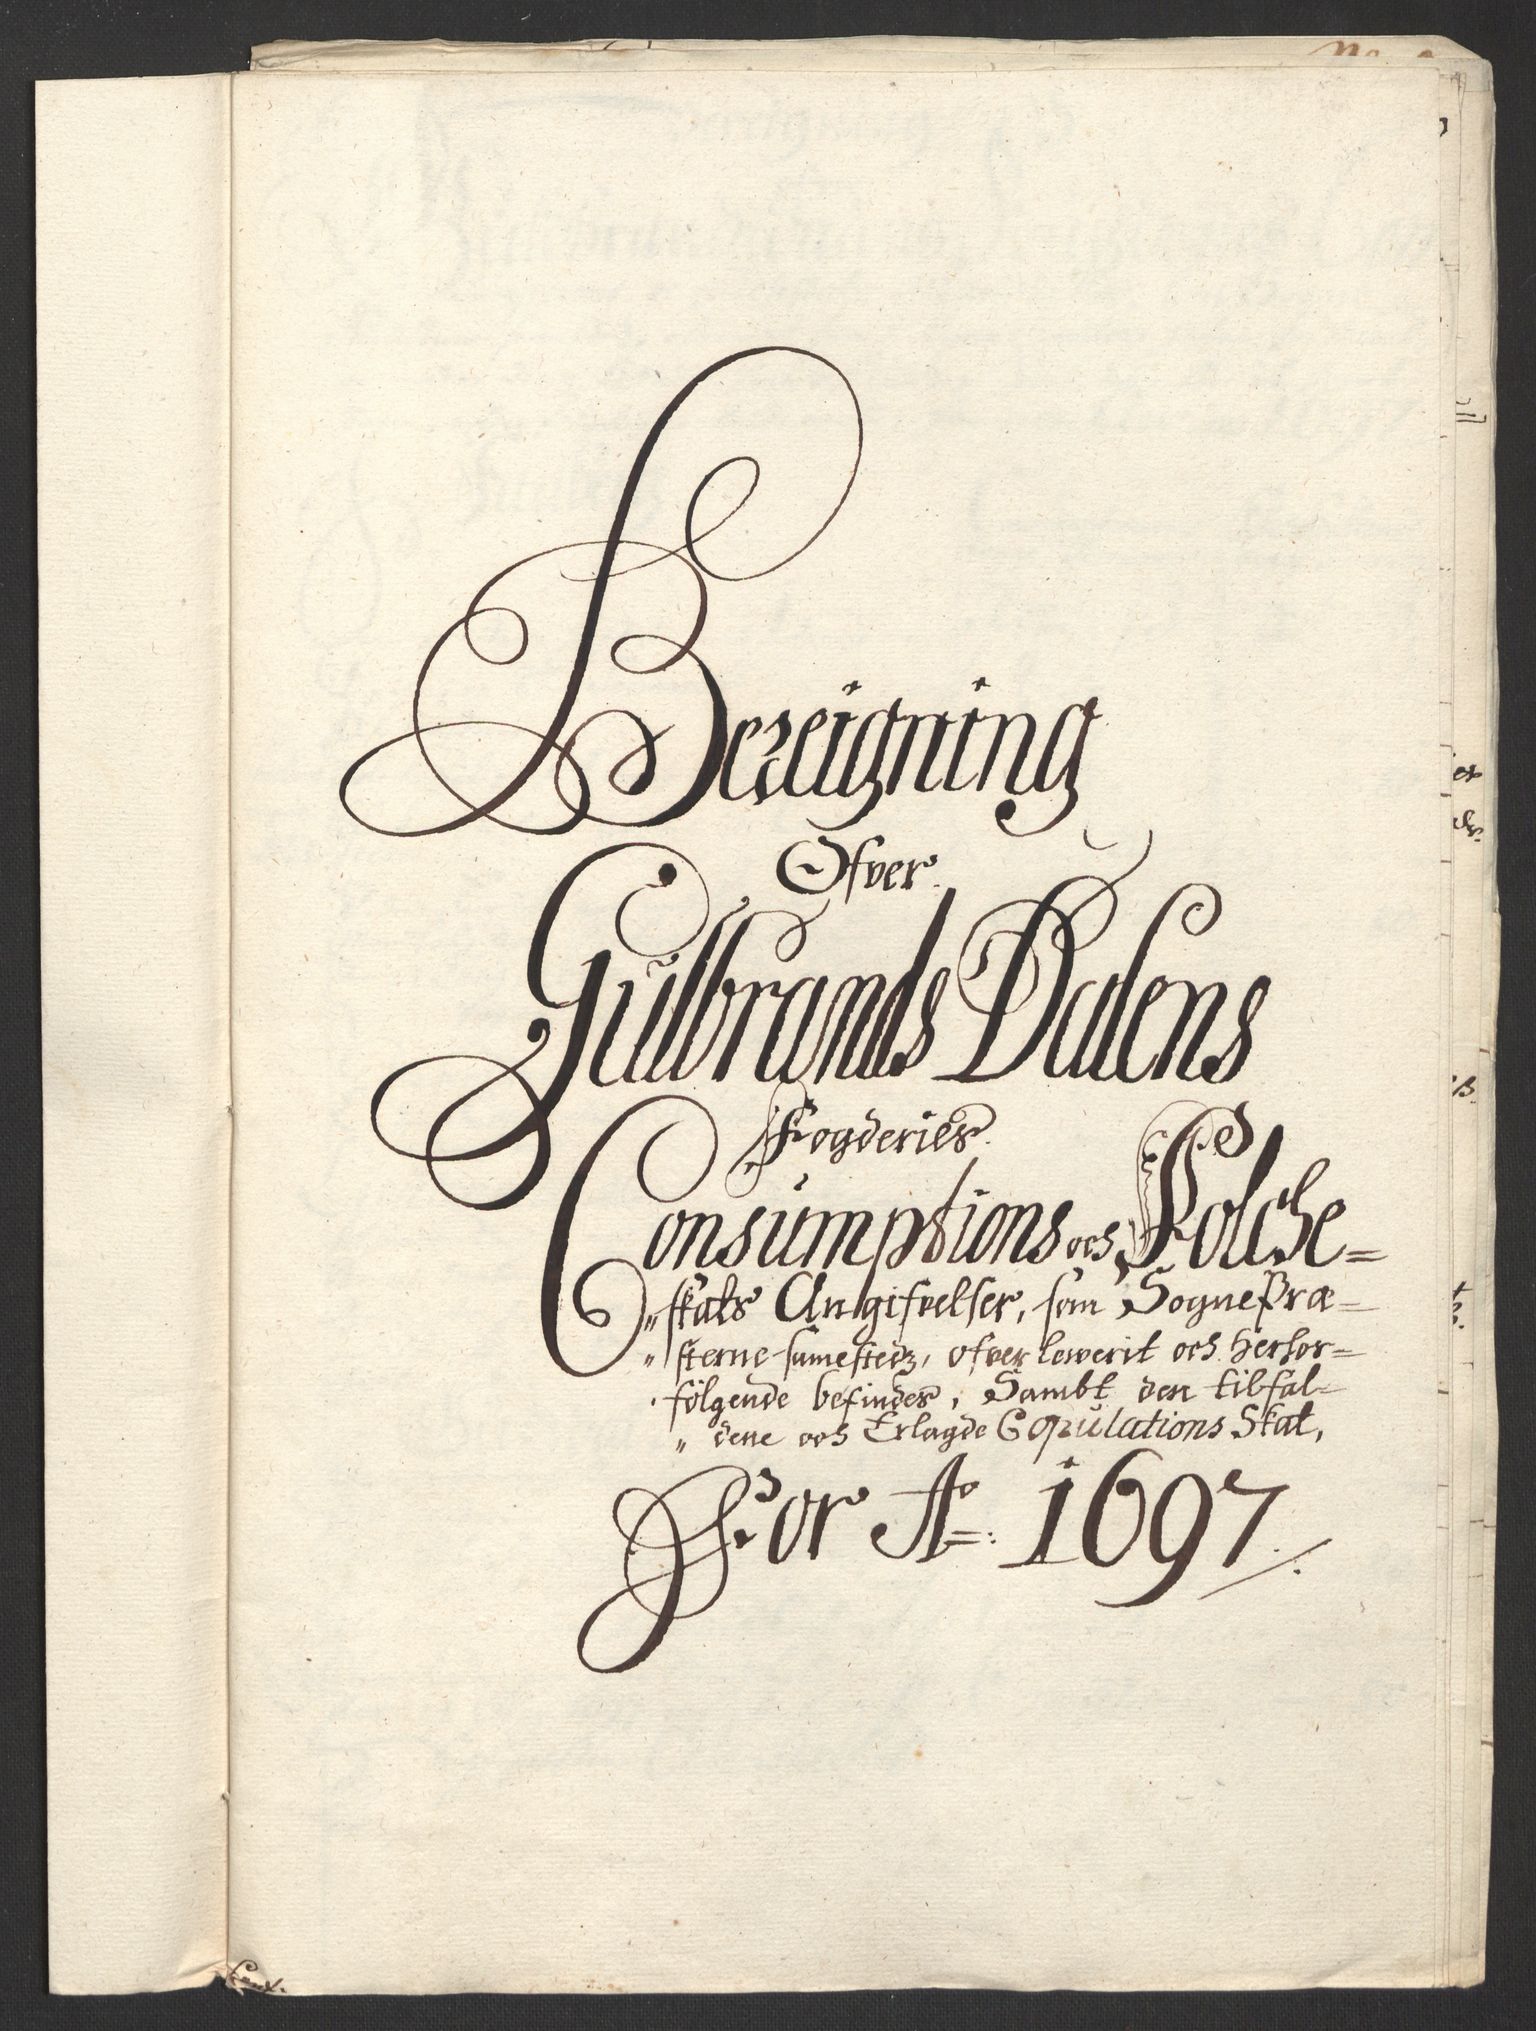 Bezeigning
Ofver
Gulbrands Dalens
Fogderies
Consumptions och Folche=
„ skats Angifvelser, som SognePræ=
„ sterne sammesteds, ofver lewerit och herhor=
følgende befindes, Sambt den tilfal=
„ dene och Erlagde Copulations Skat,
For Ao: 1697